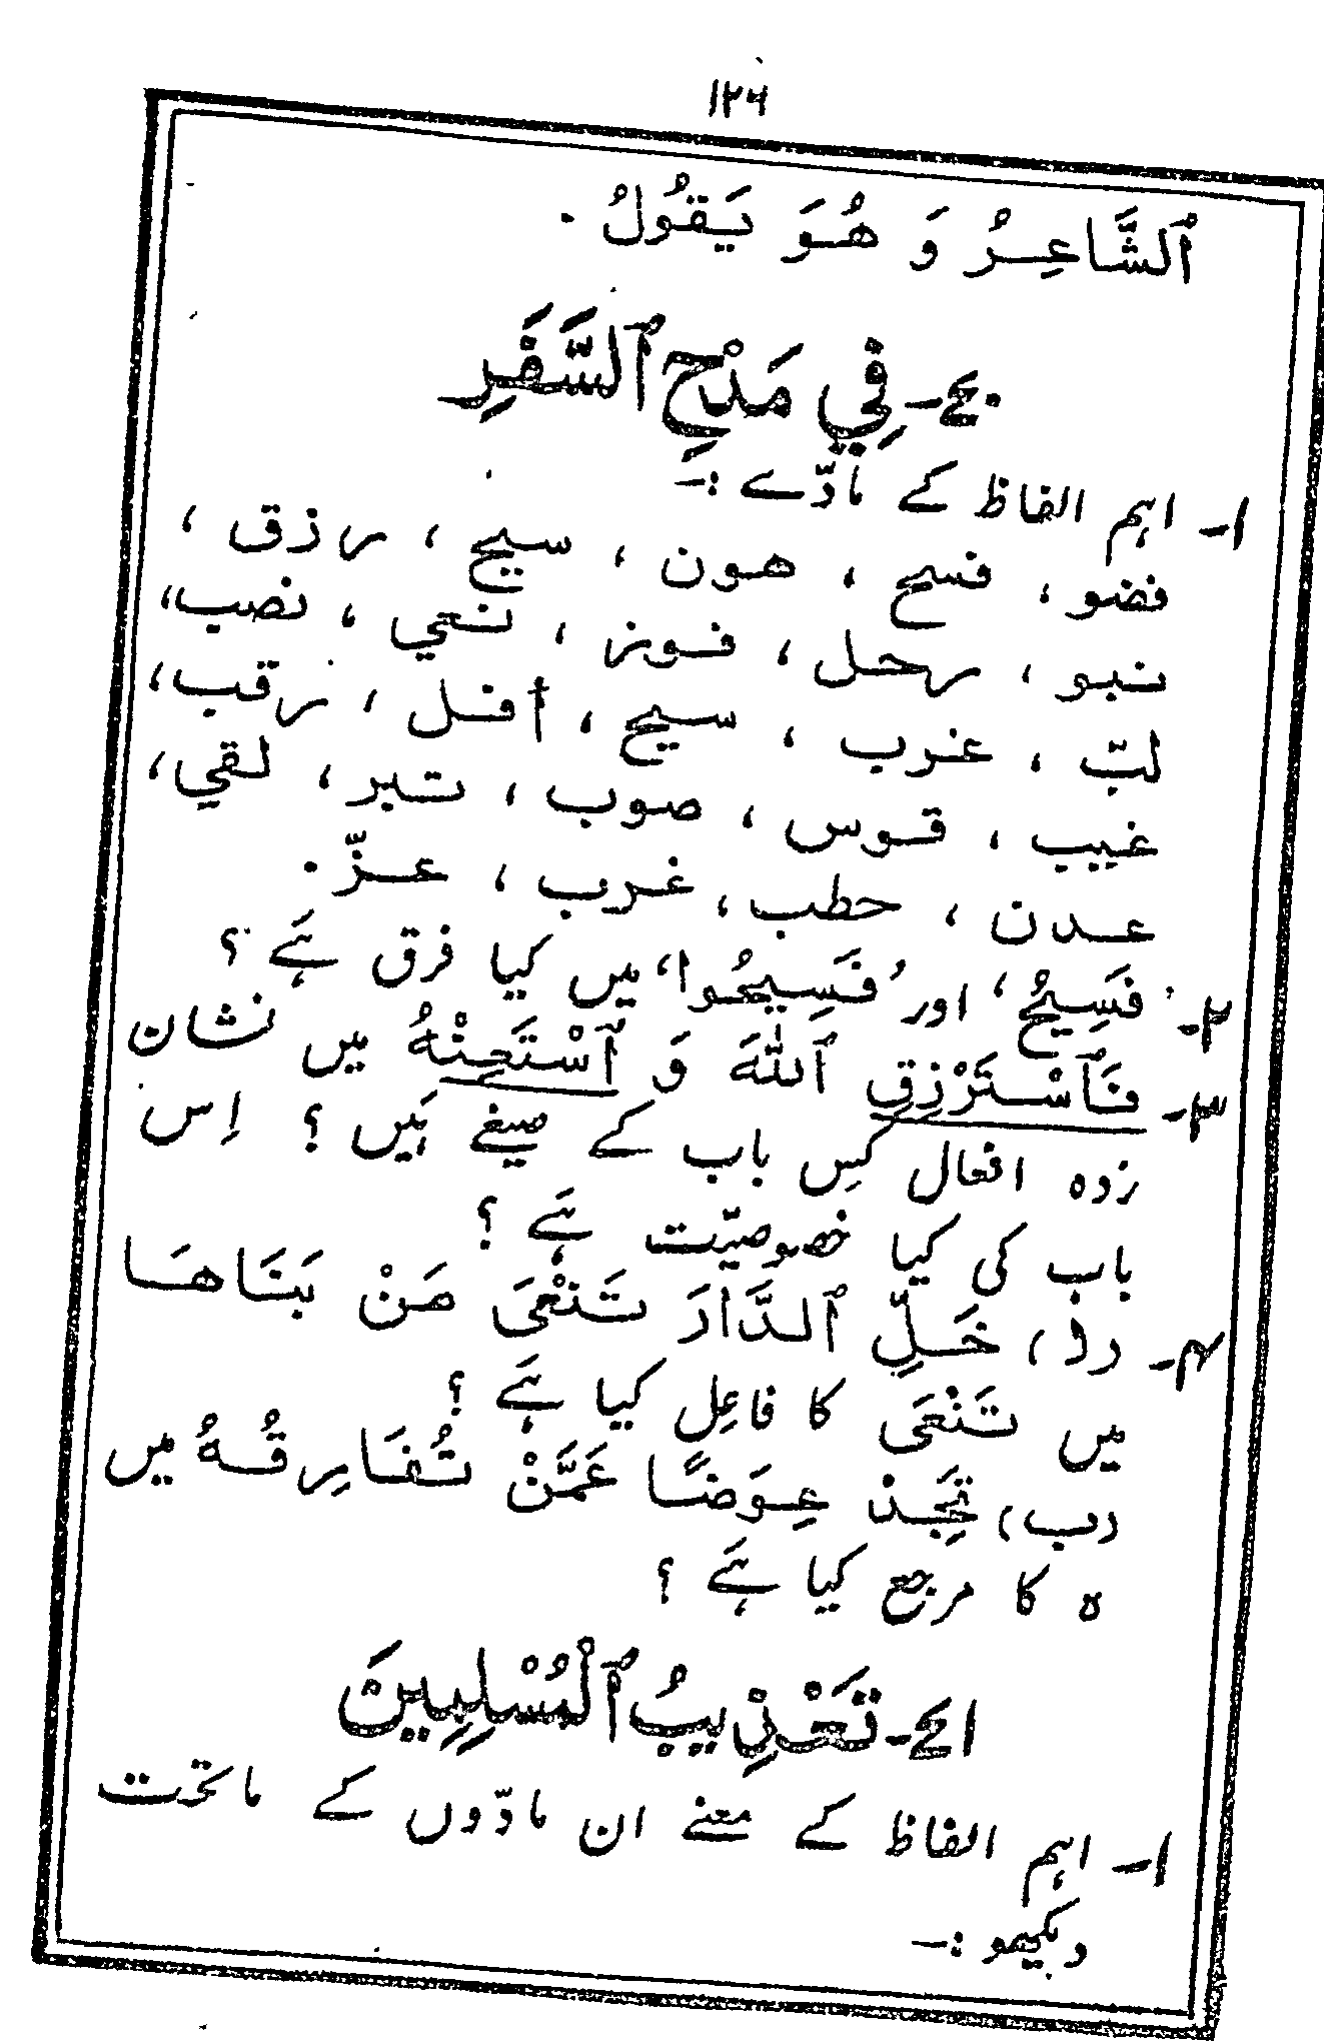 ۱۲۶
ٱلشَّاعِرُ وَ هُوَ يَقُولُ ۔
۷۰۔ فِي مَدْحِ ٱلسَّفَرِ
۱۔ اہم الفاظ کے مادّے :۔
فضو ، فسح ، هون ، سيح ، رزق ،
نبو ، رحل ، فوز ، نعي ، نصب ،
لبّ ، غرب ، سيح ، أفل ، رقب ،
غيب ، قوس ، صوب ، تبر ، لقي ،
عدن ، حطب ، غرب ، عزّ ۔
۲۔ ’فَسِيحُ‘ اور ’فَسِيحُوا‘ میں کیا فرق ہَے ؟
۳۔ فَٱسْتَرْزِقِ ٱللّٰهَ وَ ٱسْتَعِنْهُ میں نشان
زدہ افعال کِس باب کے صیغے ہَیں ؟ اِس
باب کی کیا خصوصیّت ہَے ؟
۴۔ (ا) خَلِّ ٱلدَّارَ تَنْعَى مَنْ بَنَاهَا
میں تَنْعَى کا فاعِل کیا ہَے ؟
(ب) تَجِدْ عِوَضًا عَمَّنْ تُفَارِقُهُ میں
ہ کا مرجع کیا ہَے ؟
۷۱۔ تَعْذِيبُ ٱلْمُسْلِمِينَ
۱۔ اہم الفاظ کے معنے ان مادّوں کے ماتحت
دیکھو :۔